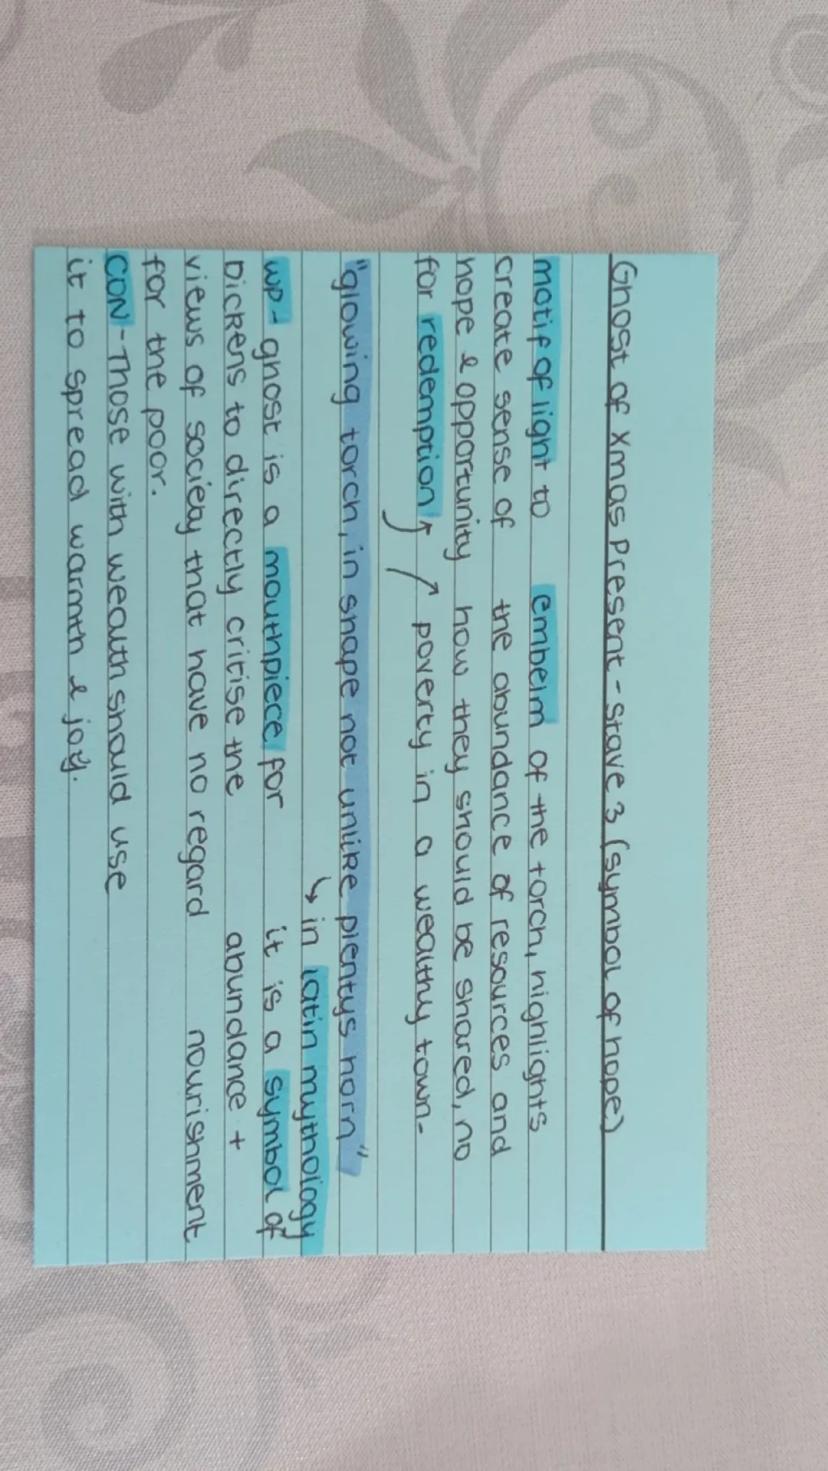 Ghost of Xmas Present - Stave 3 (symbol of hope)
motif of light to embelm of the torch, highlights
create sense of the abundance of resources and
hope & opportunity how they should be shared, no
for redemption poverty in a wealthy town-
"glowing torch, in shape not unlike plentys horn"
↳ in latin muythology
WP - ghost is a mouthpiece for it is a symbol of
Dickens to directly critise the abundance +
views of society that have no regard nourishment
for the poor.
CON - Those with wealth should use
it to spread warmth & joy.